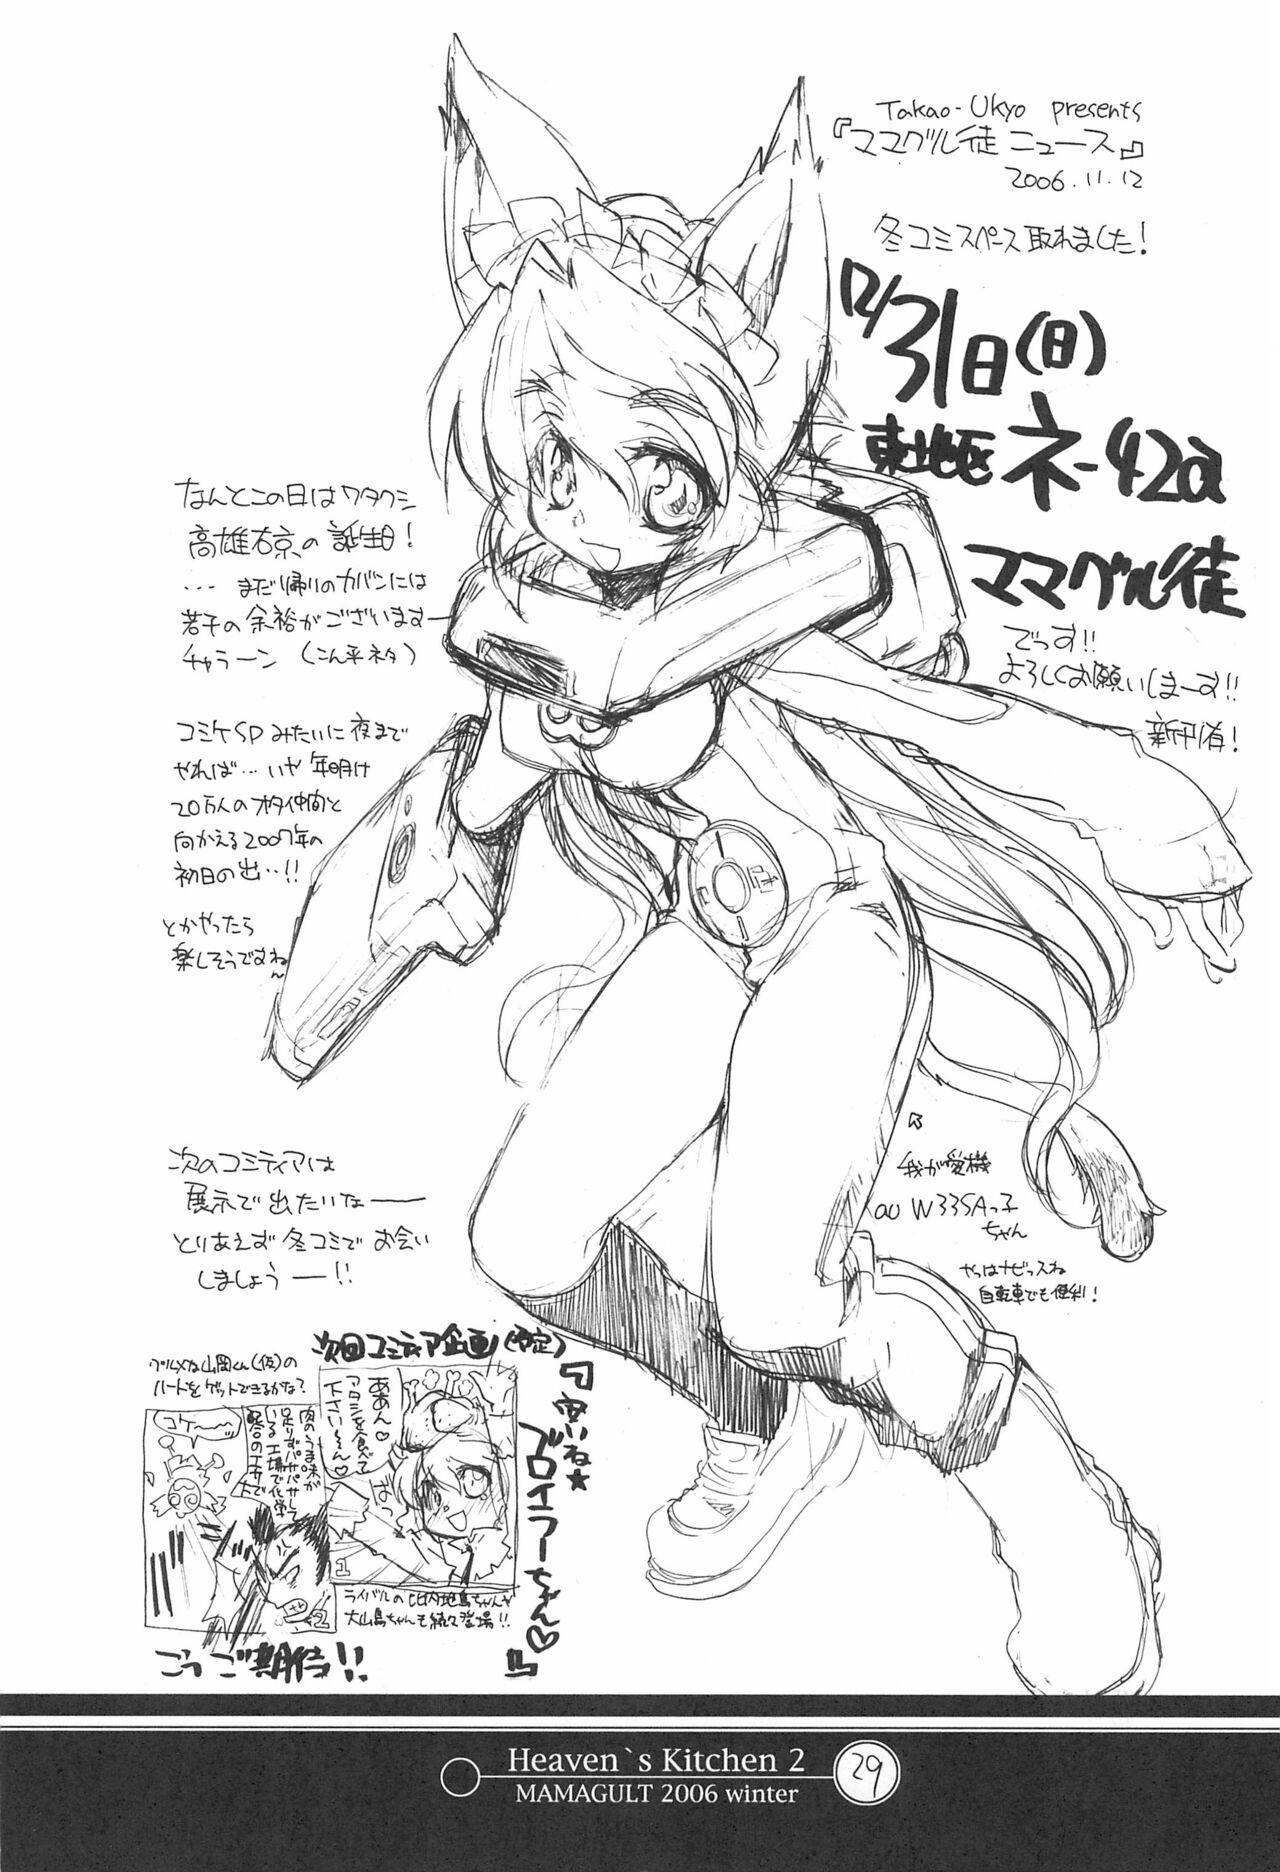 Takao-Ukyo presents
『ママグル徒ニュース』
2006.11.12
冬コミスペース取れました!
12/31日(日)
東地区 ネ-42a
ママグル徒
でっす!!
よろしくお願いしまーす!!
新刊有!
なんとこの日はワタクシ
高雄右京の誕生日!
… まだ帰りのカバンには
若干の余裕がございますー
チャラーン (こん平ネタ)
コミケSPみたいに夜まで
やれば…いや年明け
20万人のオタ仲間と
向かえる2007年の
初日の出…!!
とかやったら
楽しそうですねん
我が愛機
au W33SAっ子
ちゃん
やっぱナビっスね
自転車でも便利!
次のコミティアは
展示で出たいなー
とりあえず冬コミでお会い
しましょうー!!
次回コミティア企画(予定)
『安いね★
ブロイラーちゃん♡
』
グルメな山岡くん(仮)の
ハートをゲットできるかな?
ああん♡
アタシを食べて
下さい〜ん♡
ばっ
1
コケ〜〜っ
肉のうま味が
足りずパサパサして
いる 工場で化学
配合のエサで
2
ライバルの比内地鳥ちゃんや
大山鳥ちゃんも続々登場!!
こうご期待!!
Heaven`s Kitchen 2
MAMAGULT 2006 winter
29